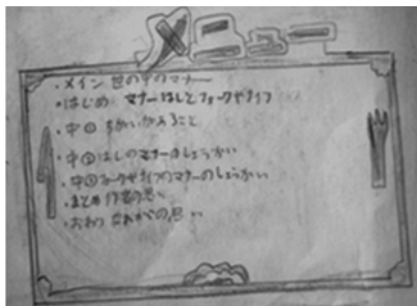 メニュー
・メイン 世の中のマナー
・はじめ マナー はしとフォークやナイフ
・中① ちがいがあること
・中② はしのマナーのしょうかい
・中③ フォークやナイフのマナーのしょうかい
・まとめ 作者の思い
・おわり の思い